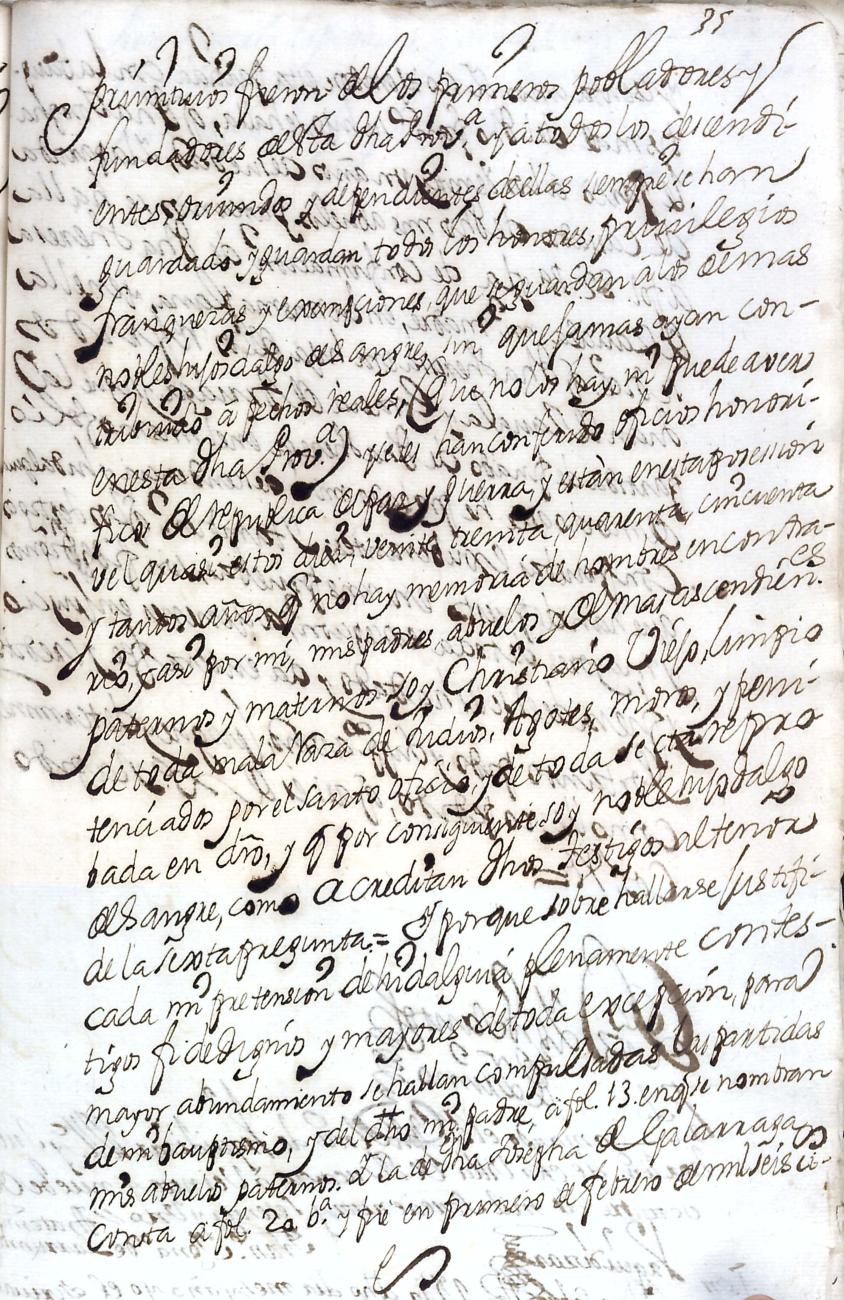 35
primitivos fueron de los primeros pobladores y
fundadores de esta dha Prov.ª, y a todos los descendi-
entes, oriundos, y dependientes de ellas siempre se han
guardado, y guardan todos los honores, privilegios
franquezas y exempciones, que se guardan a los demas
nobles hijosdalgo de sangre, sin que jamas ayan con-
tribuido á pechos reales, (que no los hay, ni puede aver
en esta dha Prov.ª) y se les han conferido oficios honori-
ficos de republica de paz y guerra, y están en esta posession
vel quasi estos diez, veinte, treinta, quarenta, cincuenta
y tantos años, q no hay memoria de hombres en contra-
rio, y asi por mi, mis padres abuelos y demas ascendien.es
paternos y maternos soy Christiano Viejo, limpio
de toda mala Raza de Judios, Agotes, moros, y peni-
tenciados por el santo oficio, y de toda secta repro
bada en dro, y q por consiguiente soy noble hijodalgo
de sangre, como acreditan dhos testigos al tenor
de la sexta pregunta = Y porque sobre hallarse justifi-
cada mi pretension de hidalguia plenamente con tes-
tigos fidedignos y mayores de toda excepción, para
mayor abundamiento se hallan compulsadas las partidas
de mi bauptismo, y del dho mi padre, a fol. 13. en q se nombran
mis abuelos paternos. Y la de dha Josepha de Galarraga
consta a fol. 20 b.ª y fue en primero de febrero de mil seis ci-